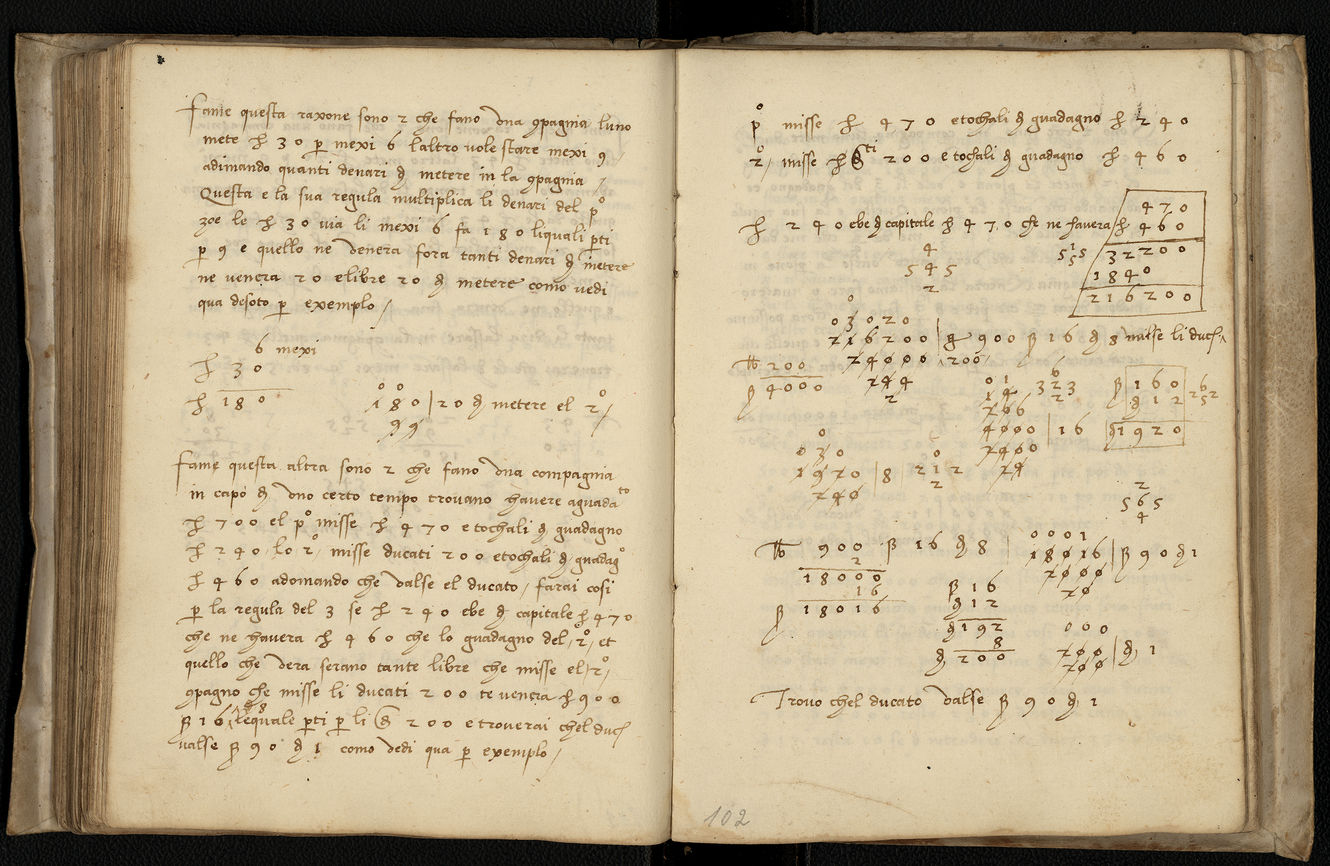 Fame questa raxone sono 2 che fano una 9pagnia luno
mete £ 30 p mexi 6 laltro vole stare mexi 9
adimando quanti denari de metere in la 9pagnia
Questa e la sua regula multiplica li denari del pº
zoe le £ 30 via li mexi 6 fa 180 liquali pti
p 9 e quello ne venera fora tanti denari de metere
ne venera 20 e libre 20 de metere como vedi
qua desoto p exemplo
6 mexi
£ 30
£ 180
0 0
180 | 20 de metere el 2º
99
Fame questa altra sono 2 che fano una compagnia
in capo de uno certo tempo trovano havere aguadato
£ 700 el pº misse £ 470 e tochali de guadagno
£ 240 lo 2º misse ducati 200 e tochali de guadagº
£ 460 adomando che valse el ducato farai cosi
p la regula del 3 se £ 240 ebe de capitale £ 470
che ne havera £ 460 che lo guadagno del 2º et
quello che vera serano tante libre che misse el 2º
9pagno che misse li ducati 200 te venera £ 900
ß 16 d 8 lequale pti p li 200 e troverai chel duc
valse ß 90 d 1 como vedi qua p exemplo
pº misse £ 470 e tochali de guadagno £ 240
2º misse 200 e tochali de guadagno £ 460
£ 240 ebe de capitale £ 470 che ne havera £ 460
470
460
32200
1840
216200
4
545
2
0
03020
216200 | 900 ß 16 d 8 misse li duc
24000 200
244
2
200
4000
01
14
206
4000 | 16
2400
24
6
323
2
ß 160
d 12
d 1920
6
252
0
030
1920 | 8
240
0
212
2
2
565
4
900 ß 16 d 8
2
18000
16
ß 18016
0001
18016 | ß 90 d 1
2000
20
ß 16
d 12
d 192
8
d 200
000
200 | d 1
200
Trovo chel ducato valse ß 90 d 1
102